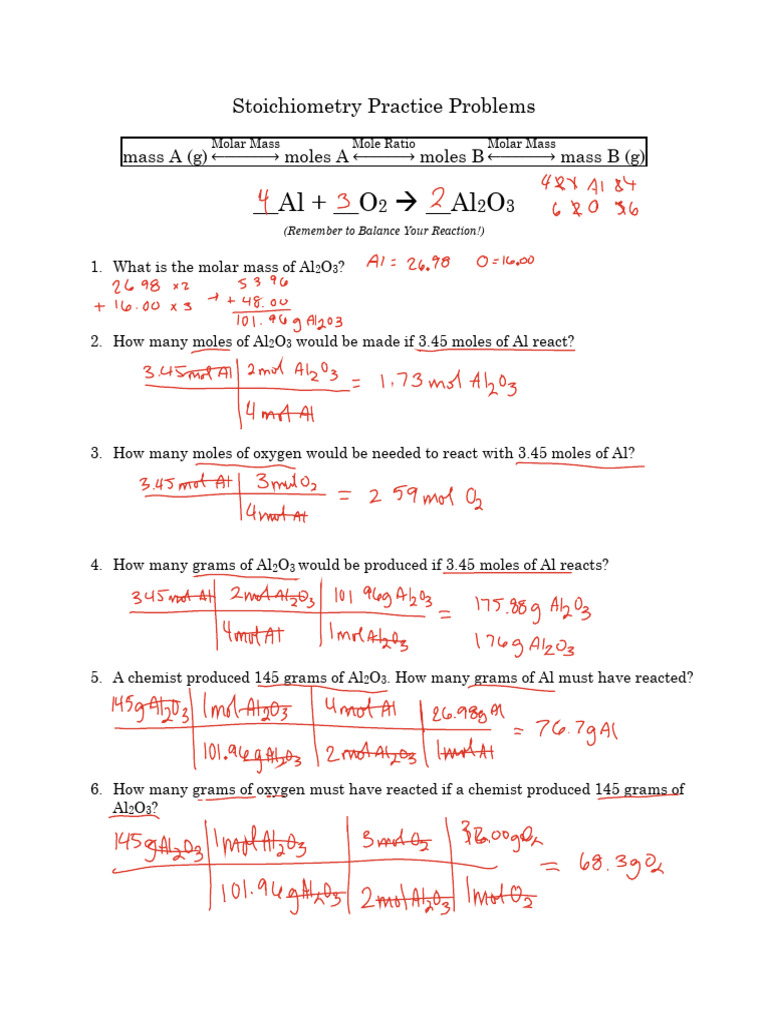 Stoichiometry Practice Problems
Molar Mass Mole Ratio Molar Mass
mass A (g) ⟷ moles A ⟷ moles B ⟷ mass B (g)
4 Al + 3 O2 → 2 Al2O3
Al
6 2 O 3 6
(Remember to Balance Your Reaction!)
1. What is the molar mass of Al2O3? Al = 26.98 O = 16.00
26 98 x2 53 96
+ 16.00 x 3 → + 48.00
101.96g Al2O3
2. How many moles of Al2O3 would be made if 3.45 moles of Al react?
3.45 mol Al 2 mol Al2O3 = 1.73 mol Al2O3
4 mol Al
3. How many moles of oxygen would be needed to react with 3.45 moles of Al?
3.45 mol Al 3 mol O2 = 2 59 mol O2
4 mol Al
4. How many grams of Al2O3 would be produced if 3.45 moles of Al reacts?
3 45 mol Al 2 mol Al2O3 101 96g Al2O3 = 175.88g Al2O3
4 mol Al 1 mol Al2O3 176g Al2O3
5. A chemist produced 145 grams of Al2O3. How many grams of Al must have reacted?
145g Al2O3 1 mol Al2O3 4 mol Al 26.98g Al = 76.7g Al
101.96g Al2O3 2 mol Al2O3 1 mol Al
6. How many grams of oxygen must have reacted if a chemist produced 145 grams of
Al2O3?
145g Al2O3 1 mol Al2O3 3 mol O2 32.00g O2 = 68.3g O2
101.96g Al2O3 2 mol Al2O3 1 mol O2